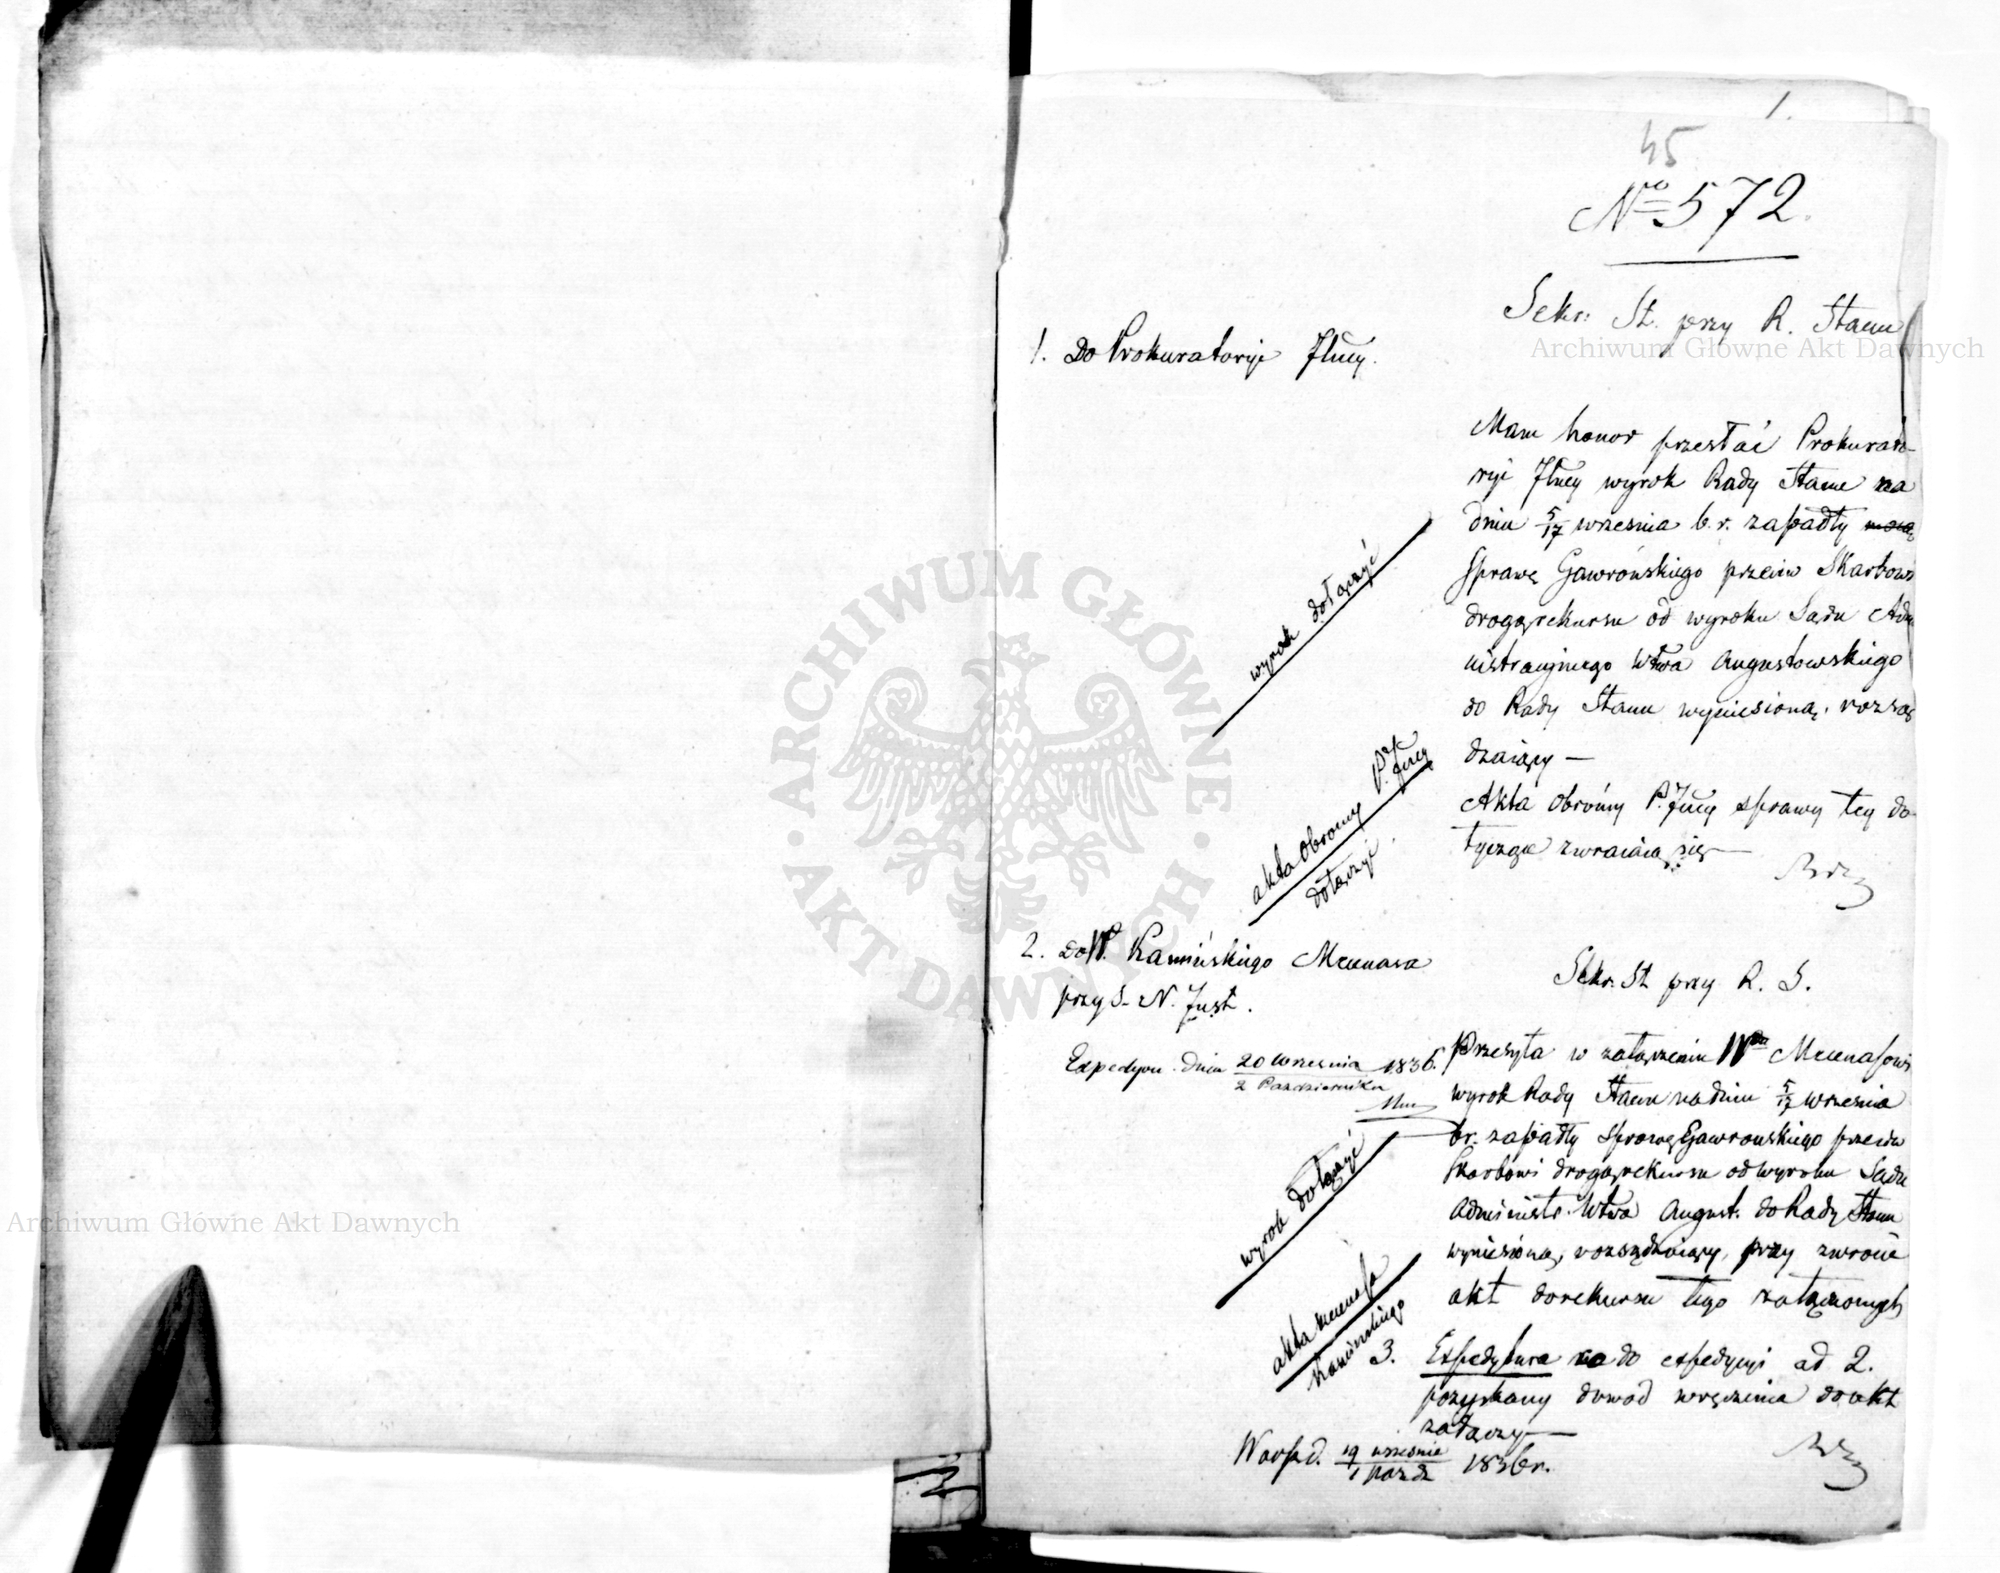 1.
45
No 572.
Sekr: St. przy R. Stanu
1. Do Prokuratoryi Jlney.
Mam honor przesłać Prokurato-
ryi Jlney wyrok Rady Stanu na
dniu 5/17 września b. r. zapadły
sprawę Gawrońskiego przeciw Skarbowi
drogą rekursu od wyroku Sądu Adm
nistracyjnego Wtwa Augustowskiego
do Rady Stanu wyniesioną, rozsą
dzaiący —
Akta obrończy P. Jlney sprawy tey do-
tyczące zwracaią się —
wyrok dołączyć
akta obrony P. Jlney
dołączyć
2. Do W. Kamińskiego Mecenasa
przy S. N. Just.
Expedyow. dnia 20 Września / 2 Października 1836.
Sekr. St. przy R. S.
Przesyła w załączeniu Wmu Mecenasowi
wyrok Rady Stanu na dniu 5/17 września
br. zapadły sprawę Gawrońskiego przeciw
Skarbowi drogą rekursu od wyroku Sądu
Administr. Wtwa August. do Rady Stanu
wyniesioną, rozsądzaiący, przy zwrocie
akt do rekursu tego załączonych
wyrok dołączyć
akta Mecenasa
Kamińskiego
3. Expedytura do expedycyi ad 2.
pozyskany dowód wręczenia do akt
załączy —
Warsz. d. 19 września / 1 paźdz 1836 r.
Archiwum Główne Akt Dawnych
Archiwum Główne Akt Dawnych
ARCHIWUM GŁÓWNE · AKT DAWNYCH ·